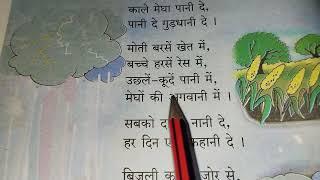 काले मेघा पानी दे,
पानी दे गुड़धानी दे ।
मोती बरसें खेत में,
बच्चे हरसें रेस में,
उछलें-कूदें पानी में,
मेघों की में ।
सबको नानी दे,
हर दिन कहानी दे ।
बिजली ज़ोर से,